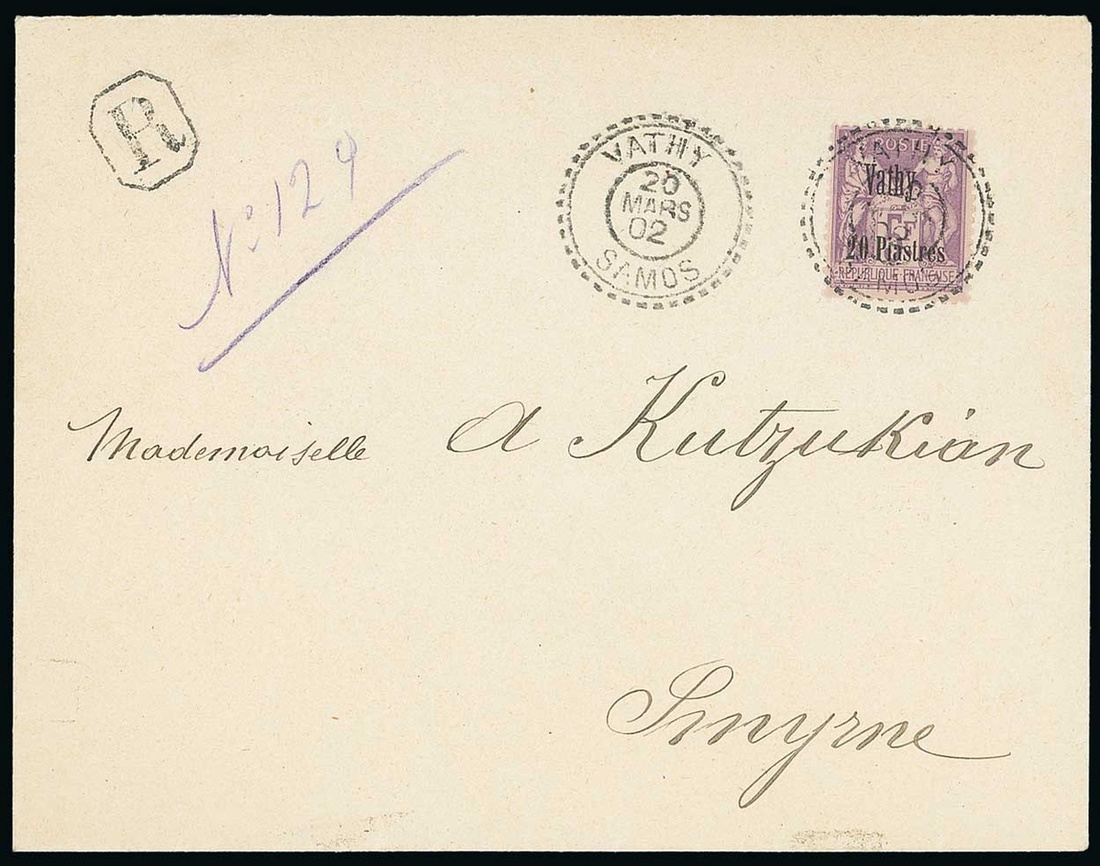 R
No. 129
VATHY
20
MARS
02
SAMOS
POSTES
Vathy
5F
20 Piastres
REPUBLIQUE FRANCAISE
Mademoiselle A Kutzukian
Smyrne